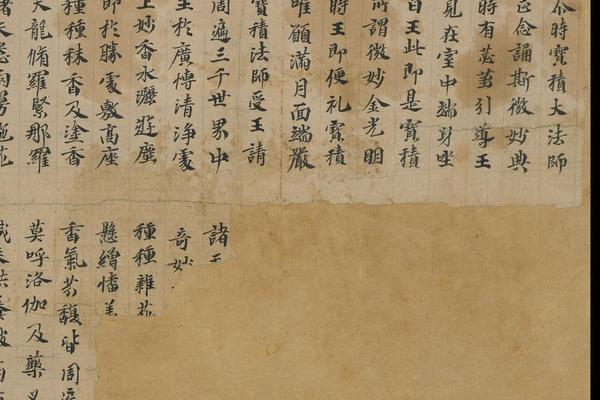 尒時寳積大法師
正念誦斯微妙典
時有苾芻引導王
見在室中端身坐
白王此即是寳積
所謂微妙金光明
時王即便礼寳積
唯願滿月面端嚴
寳積法師受王請
周遍三千世界中 諸
王於廣博清淨處 奇妙
上妙香水灑遊塵 種種雜花
即於勝處敷高座 懸繒幡盖
種種秣香及塗香 香氣芬馥皆周遍
天龍脩羅緊那羅 莫呼洛伽及藥叉
諸天悉雨曼陁花 咸來供養彼